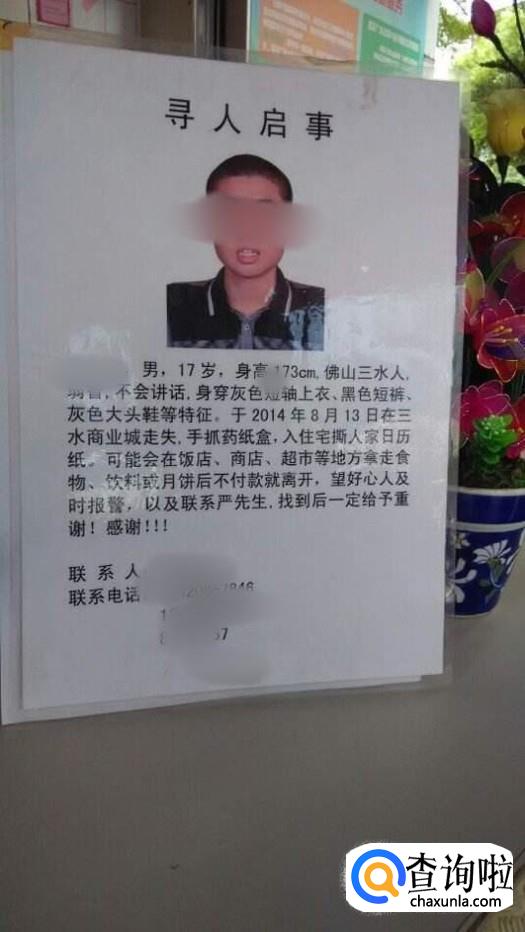 寻人启事
男，17岁，身高173cm，佛山三水人，
弱智，不会讲话，身穿灰色短轴上衣、黑色短裤、
灰色大头鞋等特征。于2014年8月13日在三
水商业城走失，手抓药纸盒，入住宅撕人家日历
纸。可能会在饭店、商店、超市等地方拿走食
物、饮料或月饼后不付款就离开，望好心人及
时报警，以及联系严先生，找到后一定给予重
谢！感谢！！！
联系人
联系电话
查询啦
chaxunla.com